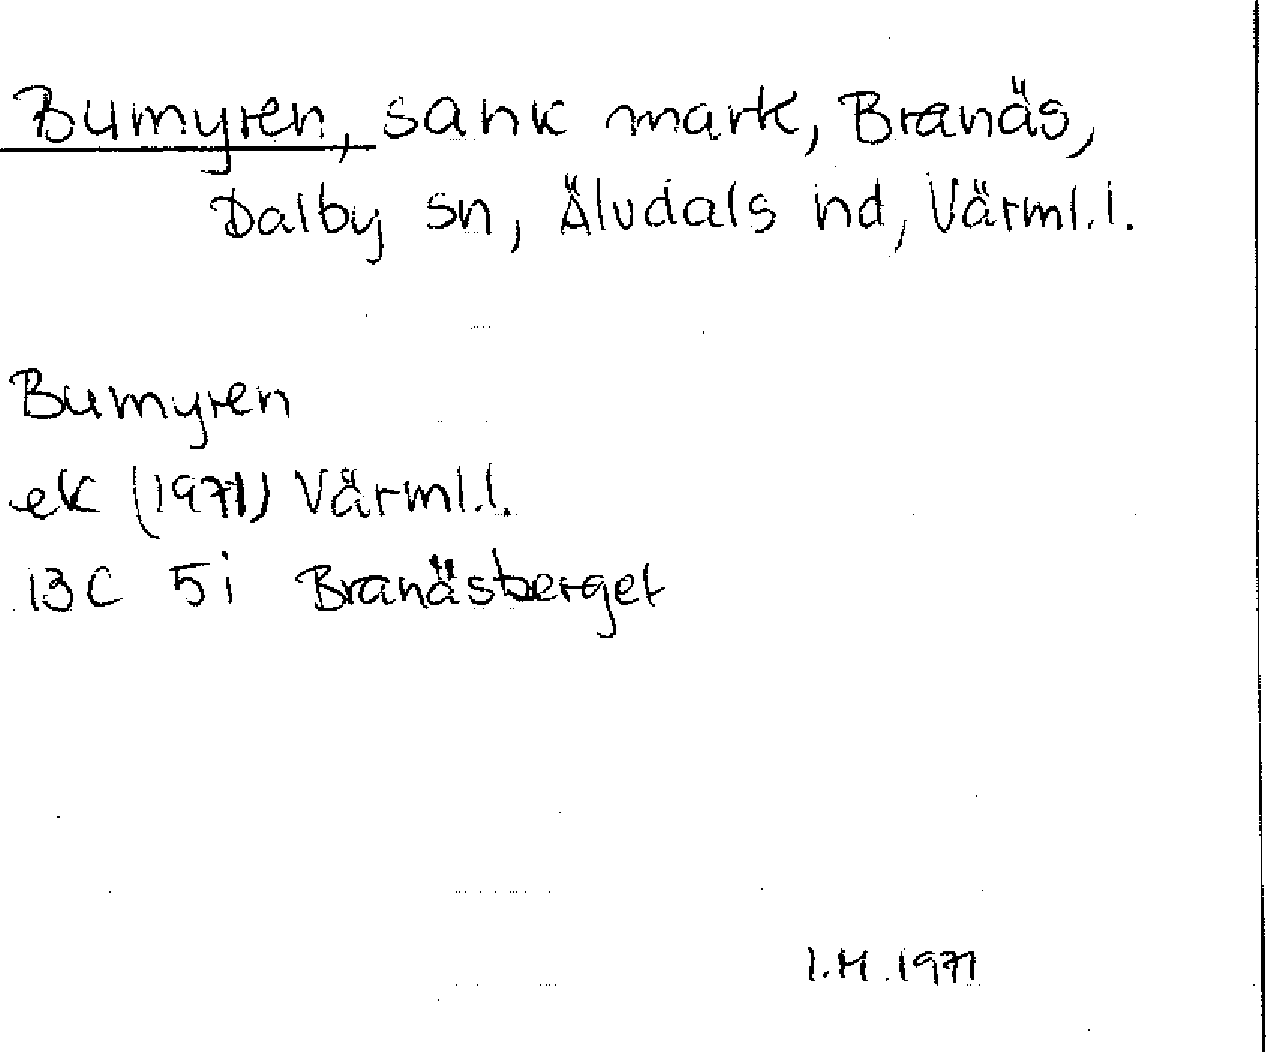 Bumyren, sank mark, Branäs,
Dalby sn, Älvdals hd, Värml.l.
Bumyren
ek (1971) Värml.l.
13C 5i Branäsberget
I.M. 1971